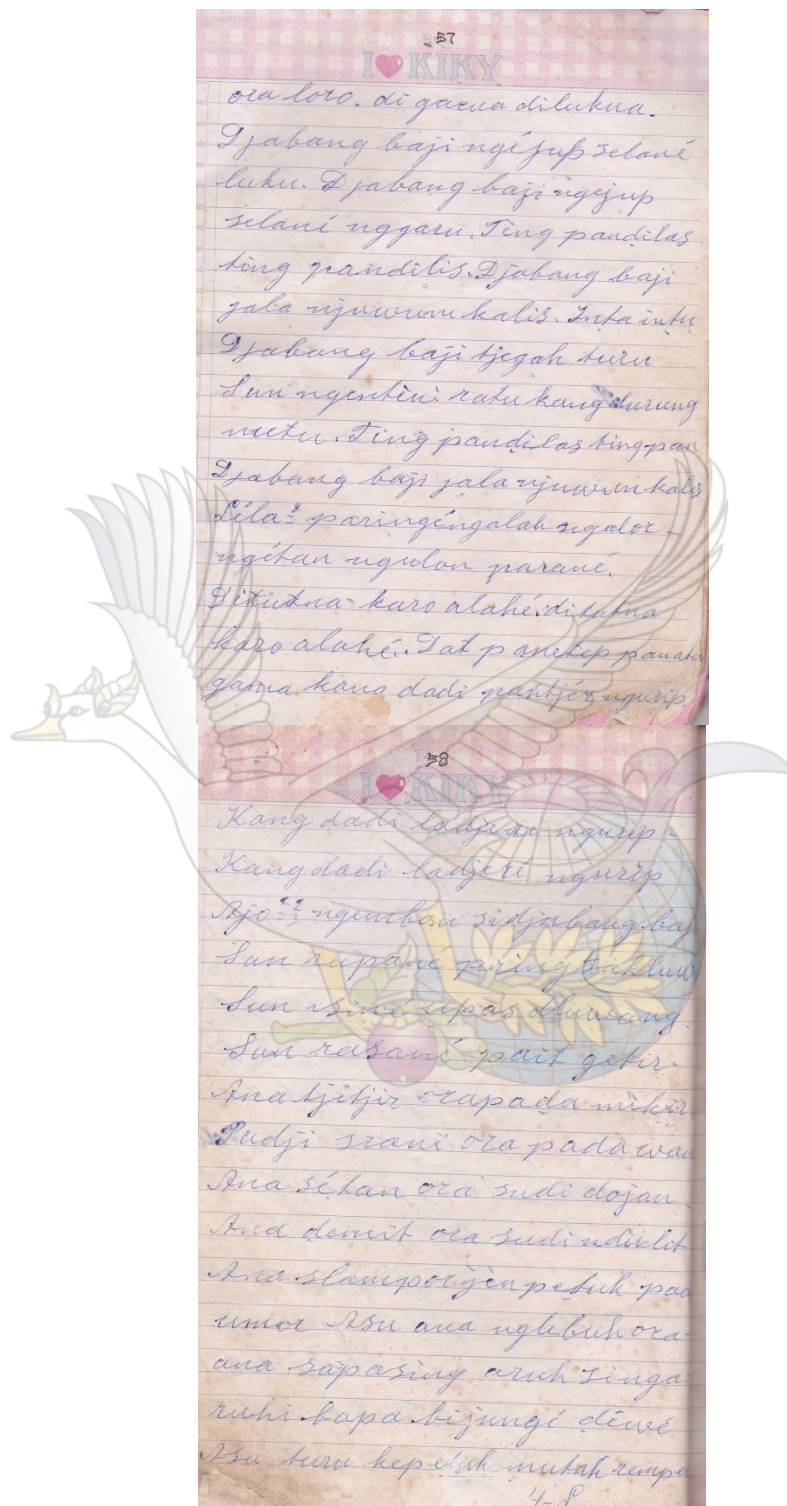 57
I ♥ KIKY
ora loro. di garua dilukua.
Djabang baji ngéjup selané
luku. Djabang baji ngejup
selané nggaru. Ting pandilas
ting pandilis. Djabang baji
jala njuwun kalis. Inta intu
Djabang baji tjegah turu
Sun ngentèni ratu kang durung
metu. Ting pandilas ting pan
Djabang baji jala njuwun kalis
Léla-2 ngalor-
ngétan ngulon parané.
Ditutna karo alahé. ditutna
karo alahé. Dat panetep panata
gama kano dadi pantjér ngurip
58
I ♥ KIKY
Kang dadi ladjere ngurip-
Kang dadi ladjeré ngurip
Ajo-2 ngemban sidjabang baj
Sun rupané pring
Sun isiné upas dluwang.
Sun rasané pait getir-
Ana tjitjir rapada mikir
Pudji srani ora pada wan
Ana sétan ora sudi dojan
Ana demit ora sudi ndiulit
Ana slampor jèn petuk pad
umor Asu ana nglebuh ora
ana sapa sing aruh singa
ruhi bapa bijungé déwé
Asu turu mutah rempe
4-8